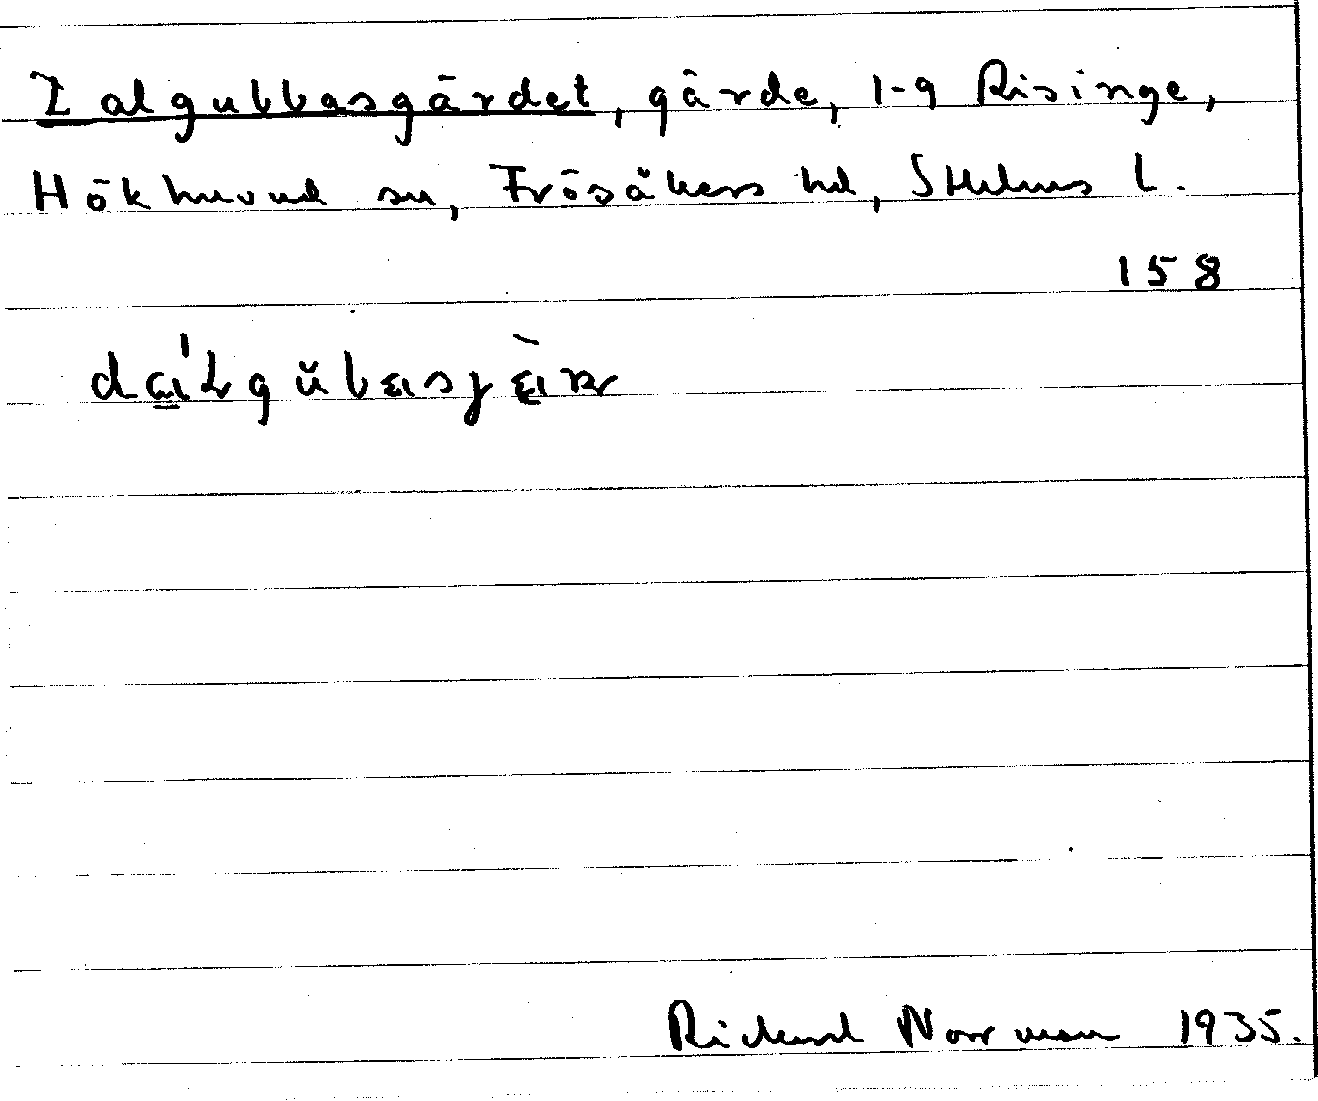 Dalgubbasgärdet, gärde, 1-9 Risinge,
Hökhuvud sn, Frösåkers hd, Sthlms l.
158
Richard Norrman 1935.